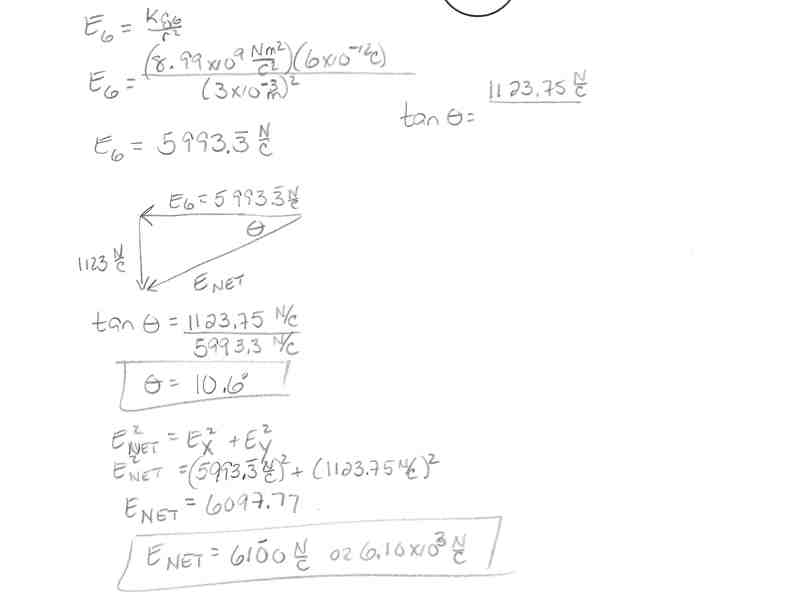 E₆ = kq₆/r²
E₆ = (8.99x10⁹ Nm²/C²)(6x10⁻¹²C)/(3x10⁻³m)²
tan θ = 1123.75 N/C
E₆ = 5993.3̅ N/C
E₆ = 5993.3̅ N/C
θ
1123 N/C
E_NET
tan θ = 1123.75 N/C / 5993.3 N/C
θ = 10.6°
E²_NET = E²_X + E²_Y
E²_NET = (5993.3̅ N/C)² + (1123.75 N/C)²
E_NET = 6097.77
E_NET = 610̅0 N/C or 6.10x10³ N/C